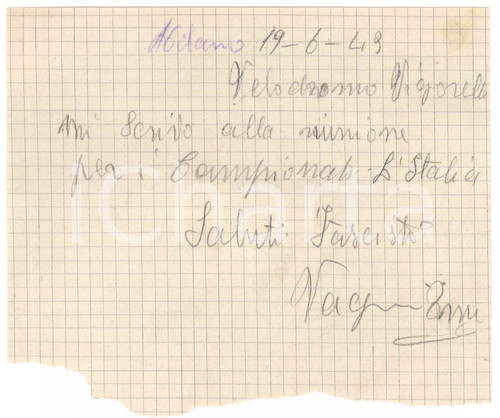 Milano 19-6-43
Velodromo Vigorelli
Mi scrivo alla riunione
per i Campionati D'Italia
Saluti Fascisti